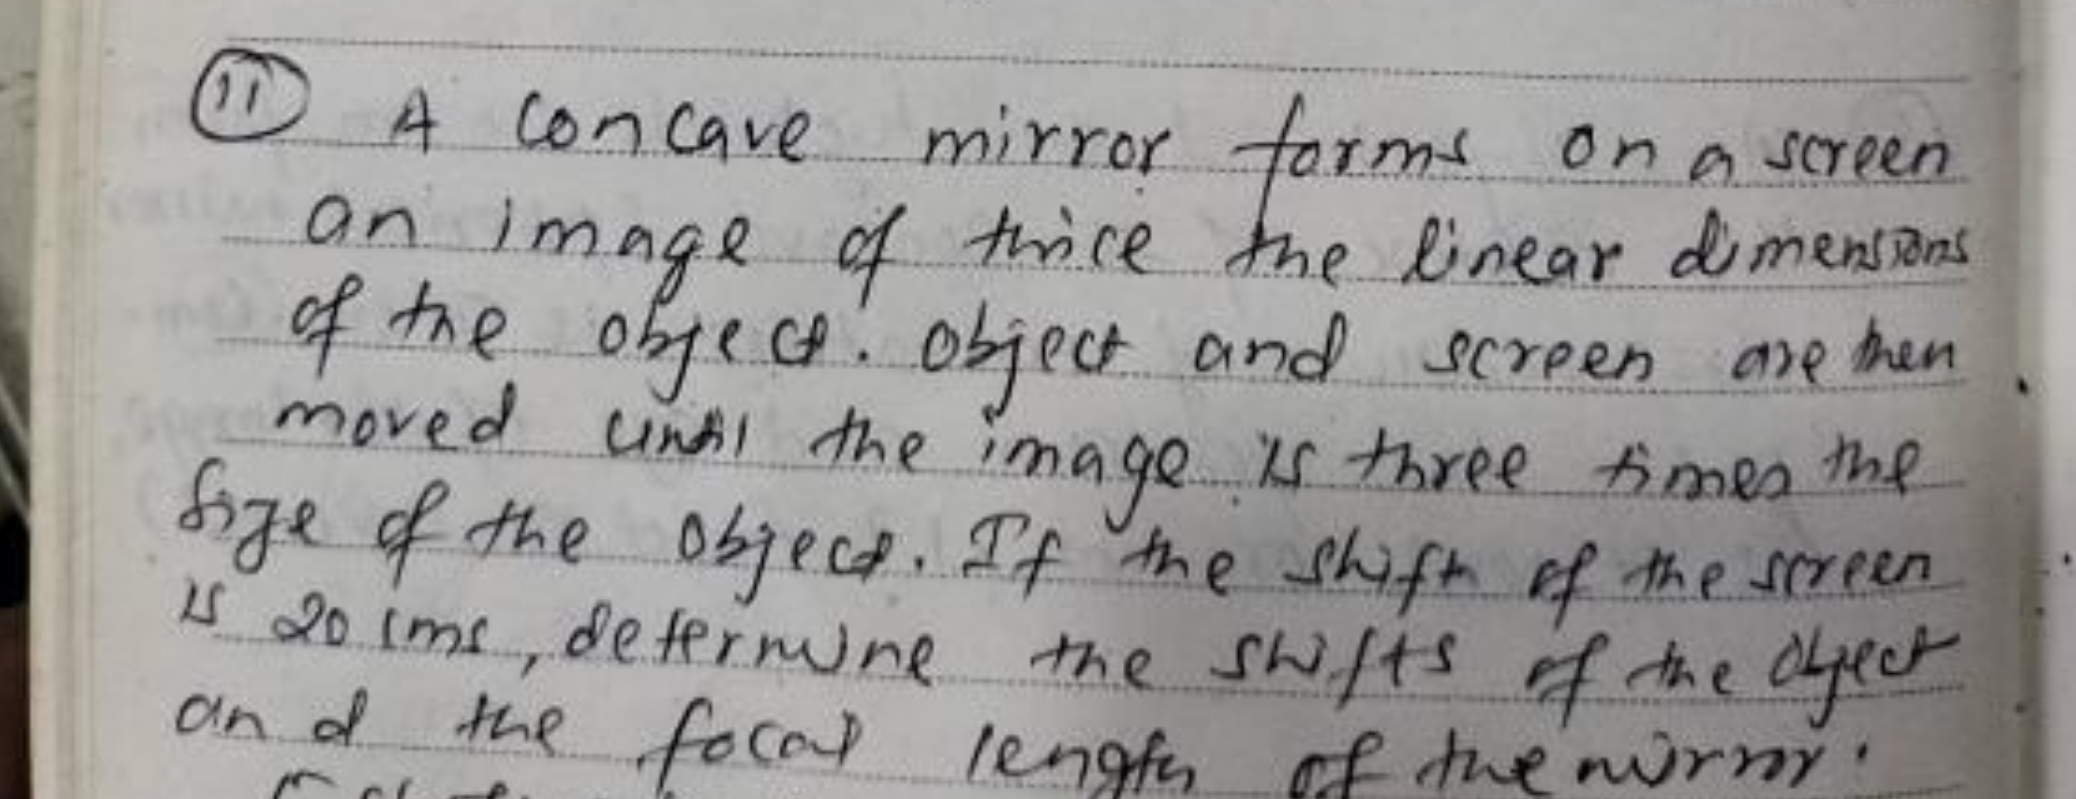 11 A concave mirror forms on a screen
an image of twice the linear dimensions
of the object. object and screen are then
moved until the image is three times the
size of the object. If the shift of the screen
is 20 cms, determine the shifts of the object
and the focal length of the mirror.